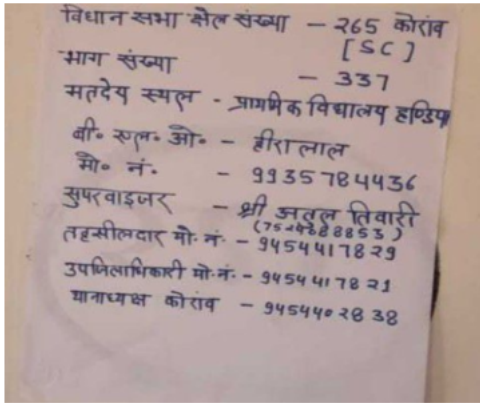 विधान सभा क्षेत्र संख्या - 265 कोरांव
[SC]
भाग संख्या - 337
मतदेय स्थल - प्राथमिक विद्यालय हण्डिया
बी० एल० ओ० - हीरालाल
मो० नं. - 9935784436
सुपरवाइजर - श्री अतुल तिवारी
(7524888853)
तहसीलदार मो. नं. - 9454417829
उपजिलाधिकारी मो. नं. - 9454417821
थानाध्यक्ष कोरांव - 9454402838